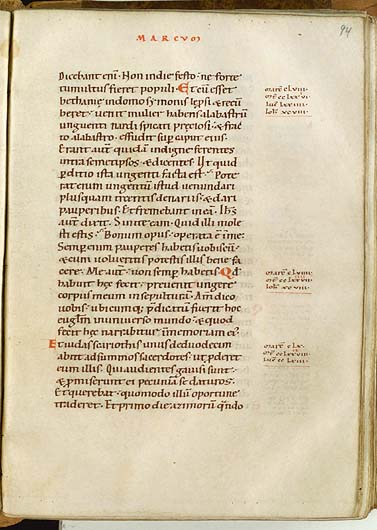 MARCUM
94
Dicebant eni͞. Non in die festo. ne forte
tumultus fieret populi. Et cu͞ esset
bethanie in domo simonis lep̄si. & recu͞
beret. uenit mulier habens alabastru͞
unguenti nardi spicati preciosi. & frac
to alabastro. effudit sup caput eius.
Erant aut͞ quida͞ indigne ferentes
intra semetipsos. & dicentes. Ut quid
p̄ditio ista ungenti facta est. Pote
rat enim ungentu͞ istud uenundari
plusquam trecentis denariis. & dari
pauperibus. Et fremebant in ea͞. Ih̄s
aut͞ dixit. Sinite eam. Quid illi mole
sti estis. Bonum opus operata e͞ in me.
Semp enim pauperes habetis uobiscu͞.
& cum uolueritis potestis illis bene fa
cere. Me aut͞ non semp habetis. Qđ
habuit hęc fecit. preuenit ungere
corpus meum in sepultura͞. Am͞ dico
uobis. ubicumq; p̄dicatu͞ fuerit hoc
eugl͞m in uniuerso mundo. & quod
fecit hęc narrabitur in memoriam ei'.
Et iudas scariothis unus de duodecim
abiit ad summos sacerdotes. ut p̄deret
eum illis. Qui audientes gauisi sunt.
& p̄miserunt ei pecunia͞ se daturos.
Et querebat quomodo illu͞ oportune
traderet. Et primo die azimoru͞ qn̄do